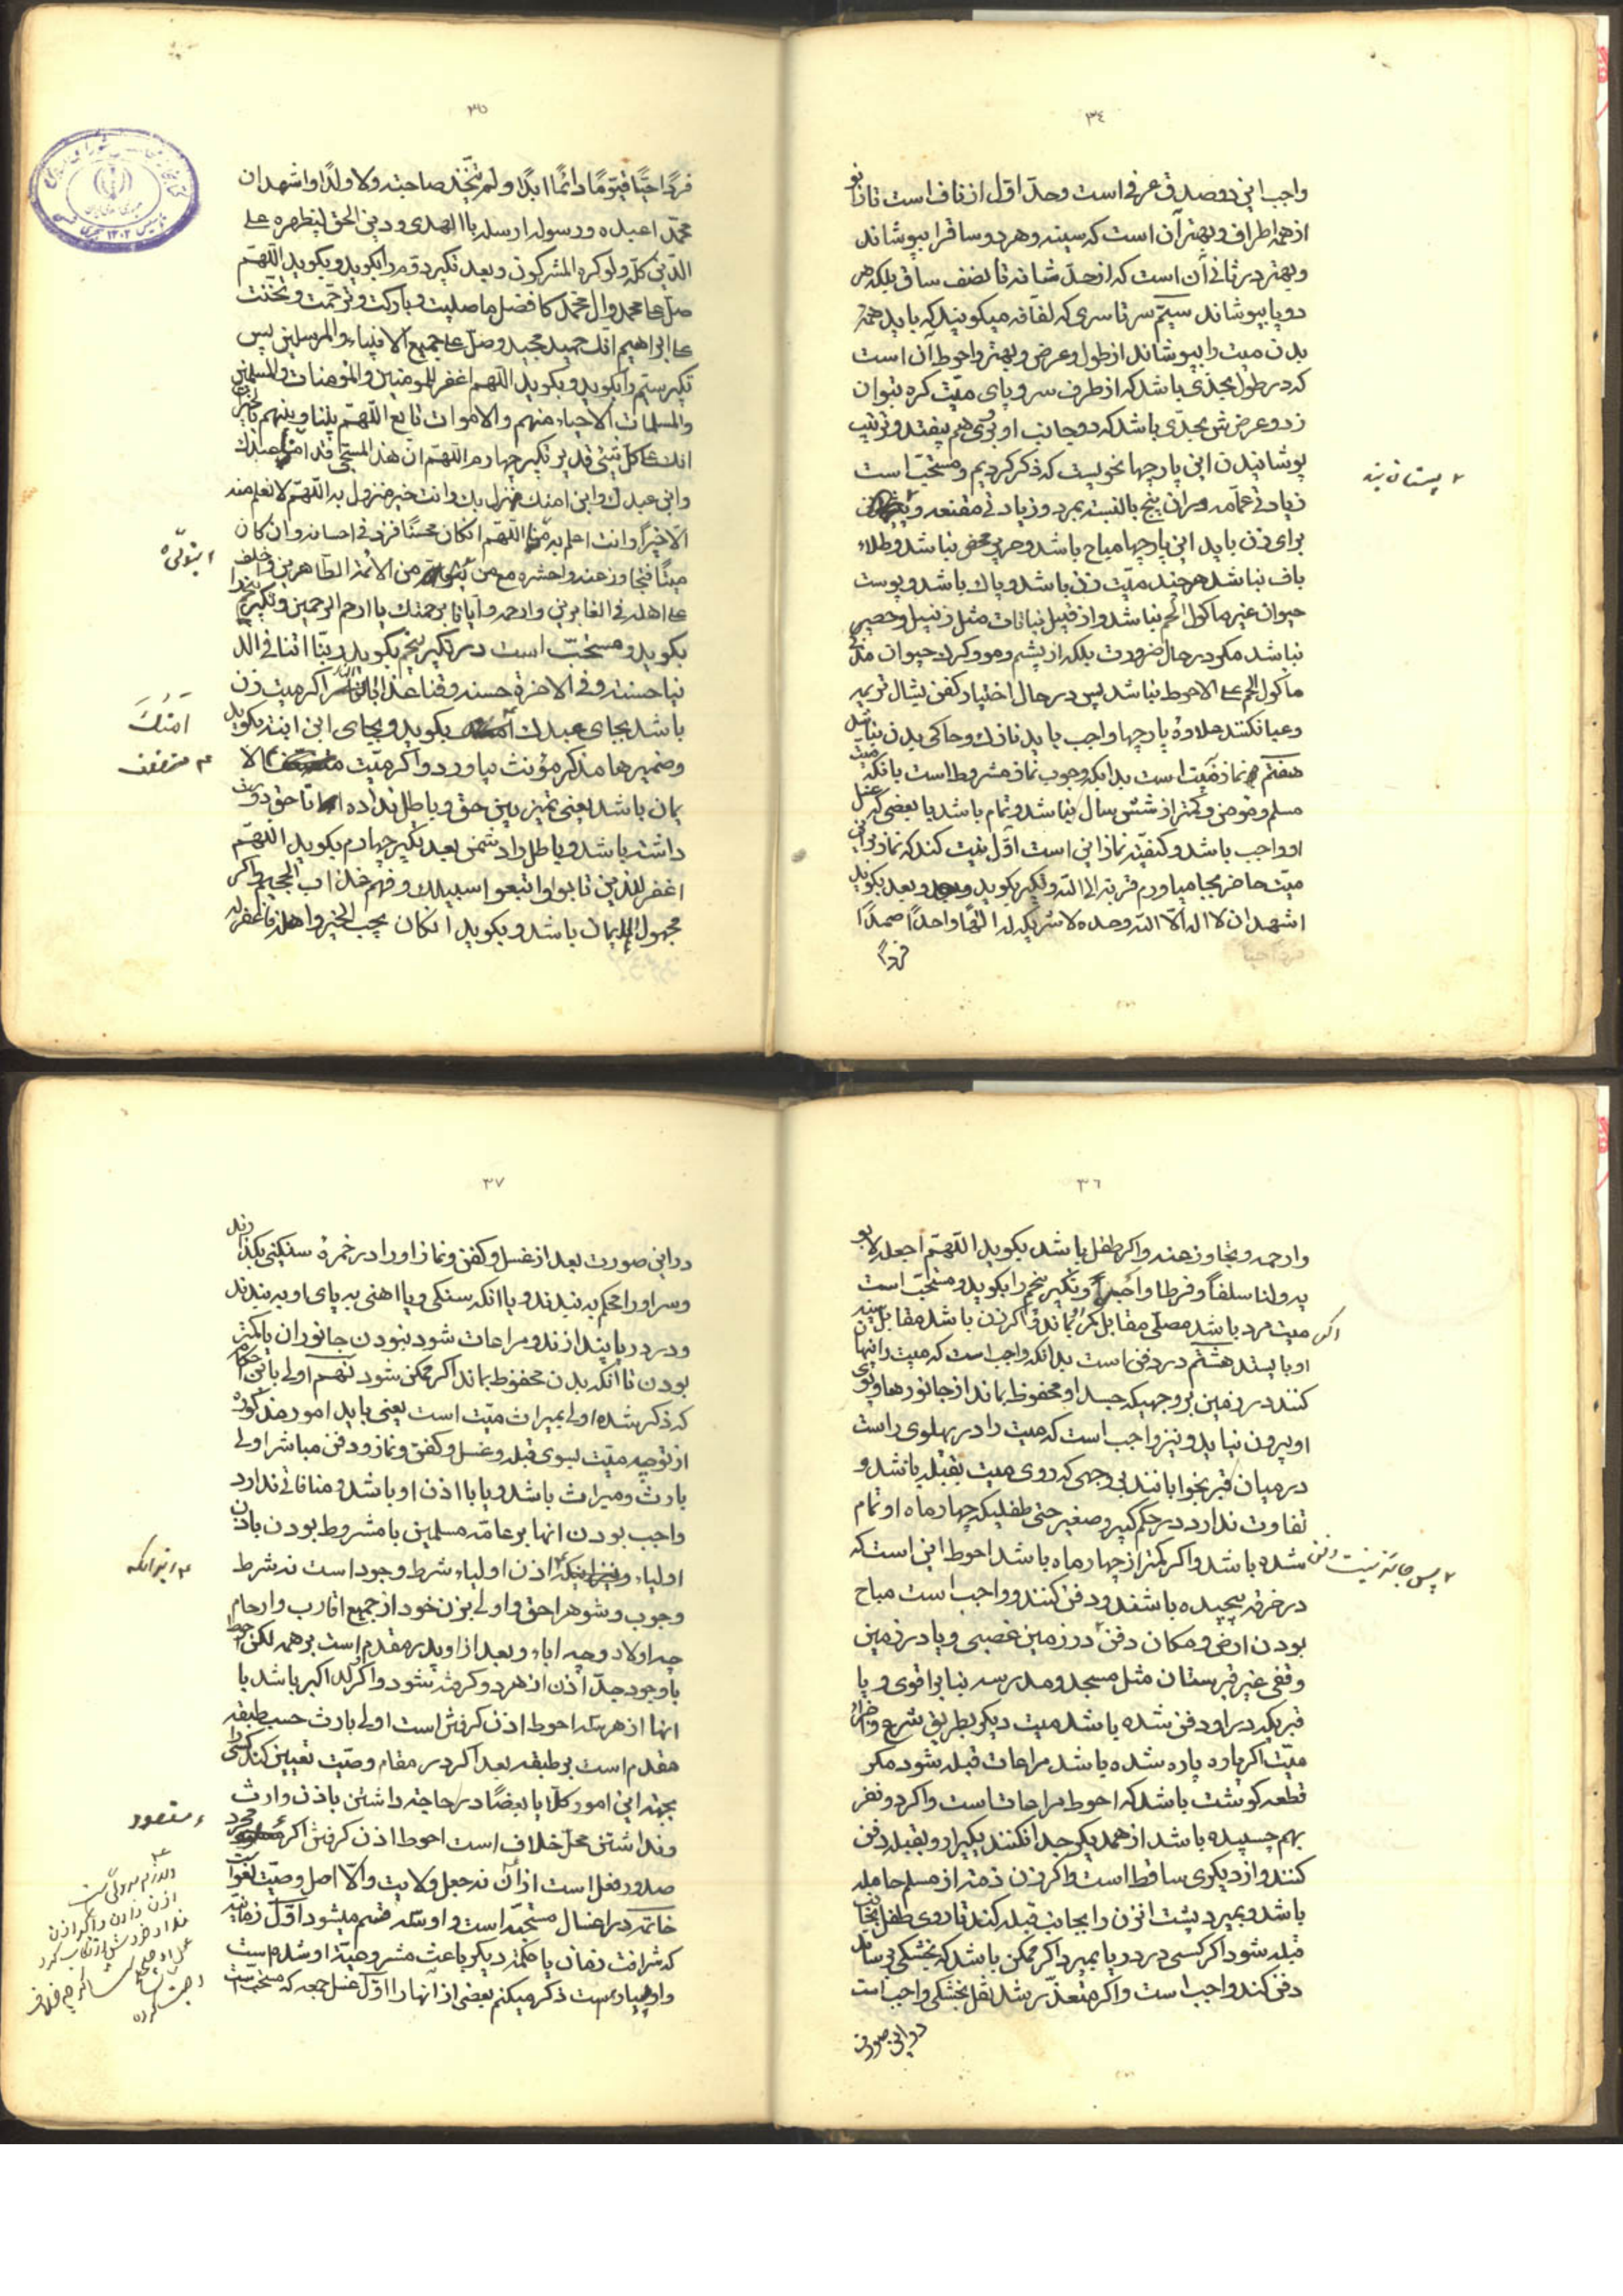 ٣٤
واجب این دو صدق عرفی است و حدّ اوّل از ناف است تا زانو
از همه اطراف و بهتر آن است که سینه و هر دو ساق را بپوشاند
و بهتر در ثانی آن است که از حدّ شانه تا نصف ساق بلکه هر
دو پا بپوشاند سیّم سر تا سری که لفّافه میکویند که باید همه
بدن میت را بپوشاند از طول و عرض و بهتر و احوط آن است
که در طول بحدّی باشد که از طرف سر و پای میّت کره بتوان
زد و عرضش بحدّی باشد که دو جانب او بروی هم بیفتد و ترتیب
پوشانیدن این پارچها نحویست که ذکر کردیم و مستحبّ است
زیادتی عمّامه و ران پیچ بالنسبة بمرد و زیادتی مقنعه و
پستان بند
برای زن باید این پارچها مباح باشد و حریر محض نباشد و طلاء
باف نباشد هر چند میّت زن باشد و پاک باشد و پوست
حیوان غیر ماکول اللحم نباشد و از قبیل نباتات مثل زنبیل و حصیر
نباشد مکر در حال ضرورت بلکه از پشم و مو و کرک حیوان
ماکول اللحم علی الاحوط نباشد پس در حال اختیار کفن بشال ترمه
و عبا نکنند علاوه پارچها واجب باید نازک و حاکی بدن نباشد
هفتم نماز میّت است بدانکه وجوب نماز مشروط است بانکه میّت
مسلم و مؤمن و کمتر از شش سال نباشد و تمام باشد یا بعضی که
او واجب باشد و کیفیّت نماز این است اوّل نیت کند که نماز بر این
میّت حاضر بجا میاورم قربة الی اللّه و تکبیر بکوید و بعد بکوید
اشهد ان لا اله الّا اللّه وحده لا شریک له الهًا واحدًا صمدًا
فردًا
٣٥
فردًا حیًّا قیّومًا دائمًا ابدًا و لم یتّخذ صاحبة ولا ولدًا و اشهد ان
محمّدا عبده و رسوله ارسله بالهدی و دین الحق لیظهره علی
الدّین کلّه ولو کره المشرکون و بعد تکبیر دوّم را بکوید و بکوید اللّهمّ
صلّ علی محمد و آل محمّد کافضل ما صلیت و بارکت و ترحّمت و تحنّنت
علی ابراهیم انّک حمید مجید و صلّ علی جمیع الانبیاء و المرسلین پس
تکبیر سیّم را بکوید و بکوید اللّهم اغفر للمؤمنین و المؤمنات و المسلمین
و المسلمات الاحیاء منهم و الاموات تابع اللّهمّ بیننا و بینهم بالخیرات
انک علی کلّ شیئ قدیر تکبیر چهارم اللّهمّ ان هذا المسجّی قدامنا عبدک
و ابن عبدک و ابن امتک نزل بک و انت خیر منزول به اللّهمّ لا نعلم منه
الّا خیرًا و انت اعلم به منّا اللّهمّ ان کان محسنًا فزد فی احسانه و ان کان
مسیئًا فتجاوز عنه و احشره مع من من الائمّة الطّاهرین و اخلف
یتولّاه
علی اهله فی الغابرین و ارحمه و ایّانا برحمتک یا ارحم الرّحمین و تکبیر پنجم را
بکوید و مستحبّ است در تکبیر پنجم بکوید ربّنا اتنا فی الد
نیا حسنة و فی الاخرة حسنة و قنا عذاب النّار اکر میت زن
باشد بجای عبدک بکوید و بجای ابن ابنة بکوید
اَمَتُکَ
و ضمیرها مذکر مؤنث بیاورد و اکر میّت الا
مستضعف
یمان باشد یعنی تمیز بین حق و باطل نداده تا حق دوست
داشته باشد و باطل را دشمن بعد تکبیر چهارم بکوید اللّهمّ
اغفر للذین تابوا و اتبعوا سبیلک و قهم عذاب الجحیم و اکر
مجهول الایمان باشد و بکوید ان کان یحب الخیر و اهله فاغفر له
٣٦
و ارحمه و تجاوز عنه و اکر طفل باشد بکوید اللّهمّ اجعله لابو
یه و لنا سلفًا و فرطا و اجرًا و تکبیر پنجم را بکوید و مستحبّ است
اکر
میت مرد باشد مصلّی مقابل کمر بماند و اکر زن باشد مقابل سینه
او بایستد هشتم در دفن است بدانکه واجب است که میت را پنهان
کنند در زمین بر وجهیکه جسد او محفوظ بماند از جانورها و بوی
او بیرون نیاید و نیز واجب است که میت را در پهلوی راست
در میان قبر بخوابانند بر وجهی که روی میت بقبله باشد و
تفاوت ندارد در حکم کبیر و صغیر حتی طفلیکه چهار ماه او تمام
شده باشد و اکر کمتر از چهار ماه باشد احوط این است که
در خرقه پیچیده باشند و دفن کنند و واجب است مباح
بودن ارض و مکان دفن در زمین غصبی و یا در زمین
پس جائز نیست دفن
وقفی غیر قبرستان مثل مسجد و مدرسه بنا بر اقوی و یا
قبریکه در او دفن شده باشد میت دیکر بطریق شرع و اجزاء
میّت اکر پاره پاره شده باشد مراعات قبله شود مکر
قطعه کوشت باشد که احوط مراعات است و اکر دو نفر
بهم چسپیده باشد از همدیکر جدا نکنند یکی را رو بقبله دفن
کنند و از دیکری ساقط است و اکر زن ذمّیه از مسلم حامله
باشد و بمیرد پشت انزن را بجانب قبله کنند تا روی طفل بجانب
قبله شود اکر کسی در دریا بمیرد اکر ممکن باشد که بخشکی برسانند
دفن کنند واجب است و اکر متعذّر شد نقل بخشکی واجب است
در این صورت
٣٧
در این صورت بعد از غسل و کفن و نماز او را در خمرهٔ سنکینی بکذارند
و سر او را محکم به بندند و یا انکه سنکی و یا اهنی به پای او به بندند
و در دریا بیندازند و مراعات شود نبودن جانوران یا کمتر
بودن تا آنکه بدن محفوظ بماند اکر ممکن شود نهم اولی باین احکام
که ذکر شده اولی بمیراث میّت است یعنی باید امور مذکوره
از توجیه میّت بسوی قبله و غسل و کفن و نماز و دفن مباشر اولی
بارث و میراث باشد و یا با اذن او باشد و منافاتی ندارد
واجب بودن انها بر عامّه مسلمین با مشروط بودن باذن
اولیاء اذن اولیاء شرط وجود است نه شرط
زیرا که
وجوب و شوهر احق و اولی بزن خود از جمیع اقارب و ارحام
چه اولاد و چه اباء و بعد از او پدر مقدم است بر همه لکن احوط
با وجود جدّ اذن از هر دو کرفته شود و اکر ولد اکبر باشد با
انها از هر سه احوط اذن کرفتن است اولی بارث حسب طبقه
مقدم است بر طبقه بعد اکر در مقام وصیّت تعیین کند کسی را
بجهة این امور کلًّا یا بعضًا در حاجة داشتن باذن وارث
و نداشتن محلّ خلاف است احوط اذن کرفتن اکر مجرد
مقصود
صدور فعل است از آن نه جعل ولایت و الّا اصل وصیّت لغو است
خاتمه در اغسال مستحبّه است و او سه قسم میشود اوّل زمانیّه
که شرافت زمان یا حکمة دیکر باعث مشروعیّة او شده است
و او بسیار است ذکر میکنم بعضی از انها را اوّل غسل جمعه که مستحب است